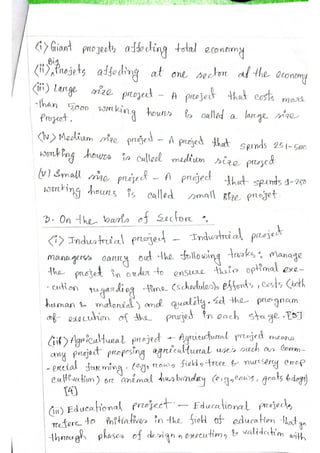 (i) Giant projects affecting total economy
(ii) Big Projets affecting at one sector of the economy
(iii) Large size project - A project that costs more
-than 5000 working hours is called a large size
Project.
(iv) Medium size project - A project that spends 251-500
working hours is called medium size project.
(v) Small size project - A project that spends 1-250
working hours is called small size projet.
3. On the basis of Sector :
(i) Industrial project - Industrial project
managers carry out the following tasks : manage
the projet in order to ensure their optimal exe-
-cution regarding -time (schedules), efforts, costs (both
human & material) and quality. Set the program
of execution of the projed in each stage. [5]
(ii) Agricultural project - Agricultural project means
any projet proposing agricultural uses such as comm-
-ercial farming. (eg, rows field, tree & nursery crop
cultivation) or animal husbandry (e.g., cows, goats & dogs)
[4]
(iii) Educational project - Educational projects
refers to initiatives in the field of education that go
through phases of design, execution, & validation with